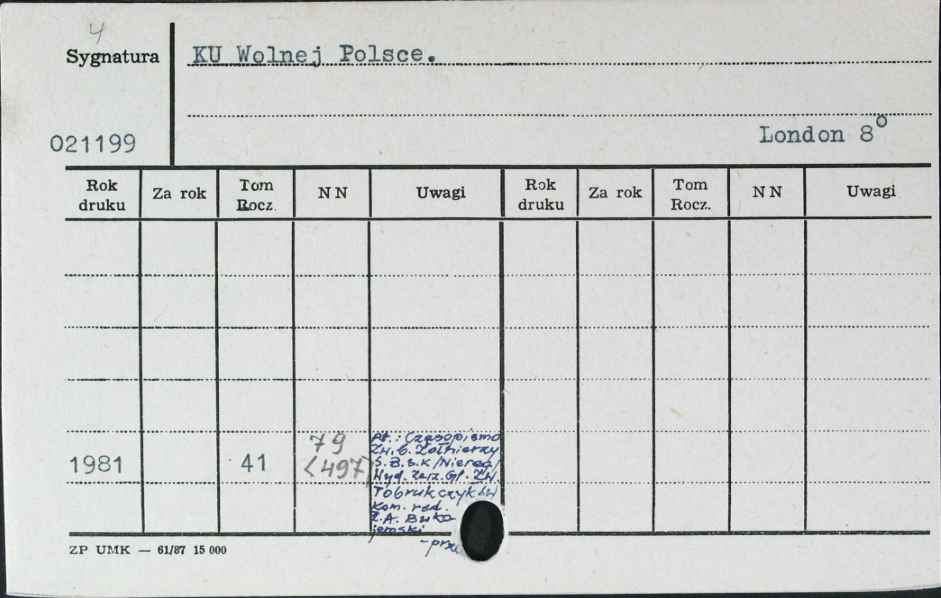 4
Sygnatura
KU Wolnej Polsce.
021199
London 8°
Rok druku Za rok Tom Rocz. NN Uwagi Rok druku Za rok Tom Rocz. NN Uwagi
1981 41 79 <497>
Pt.: Czasopismo
Zw. b. Żołnierzy
S.B.S.K/Niereg/
Wyd. Zarz. Gł. Zw.
Tobrukczyków
Kom. red.
Z.A. Buko
jemski
ZP UMK — 61/87 15 000